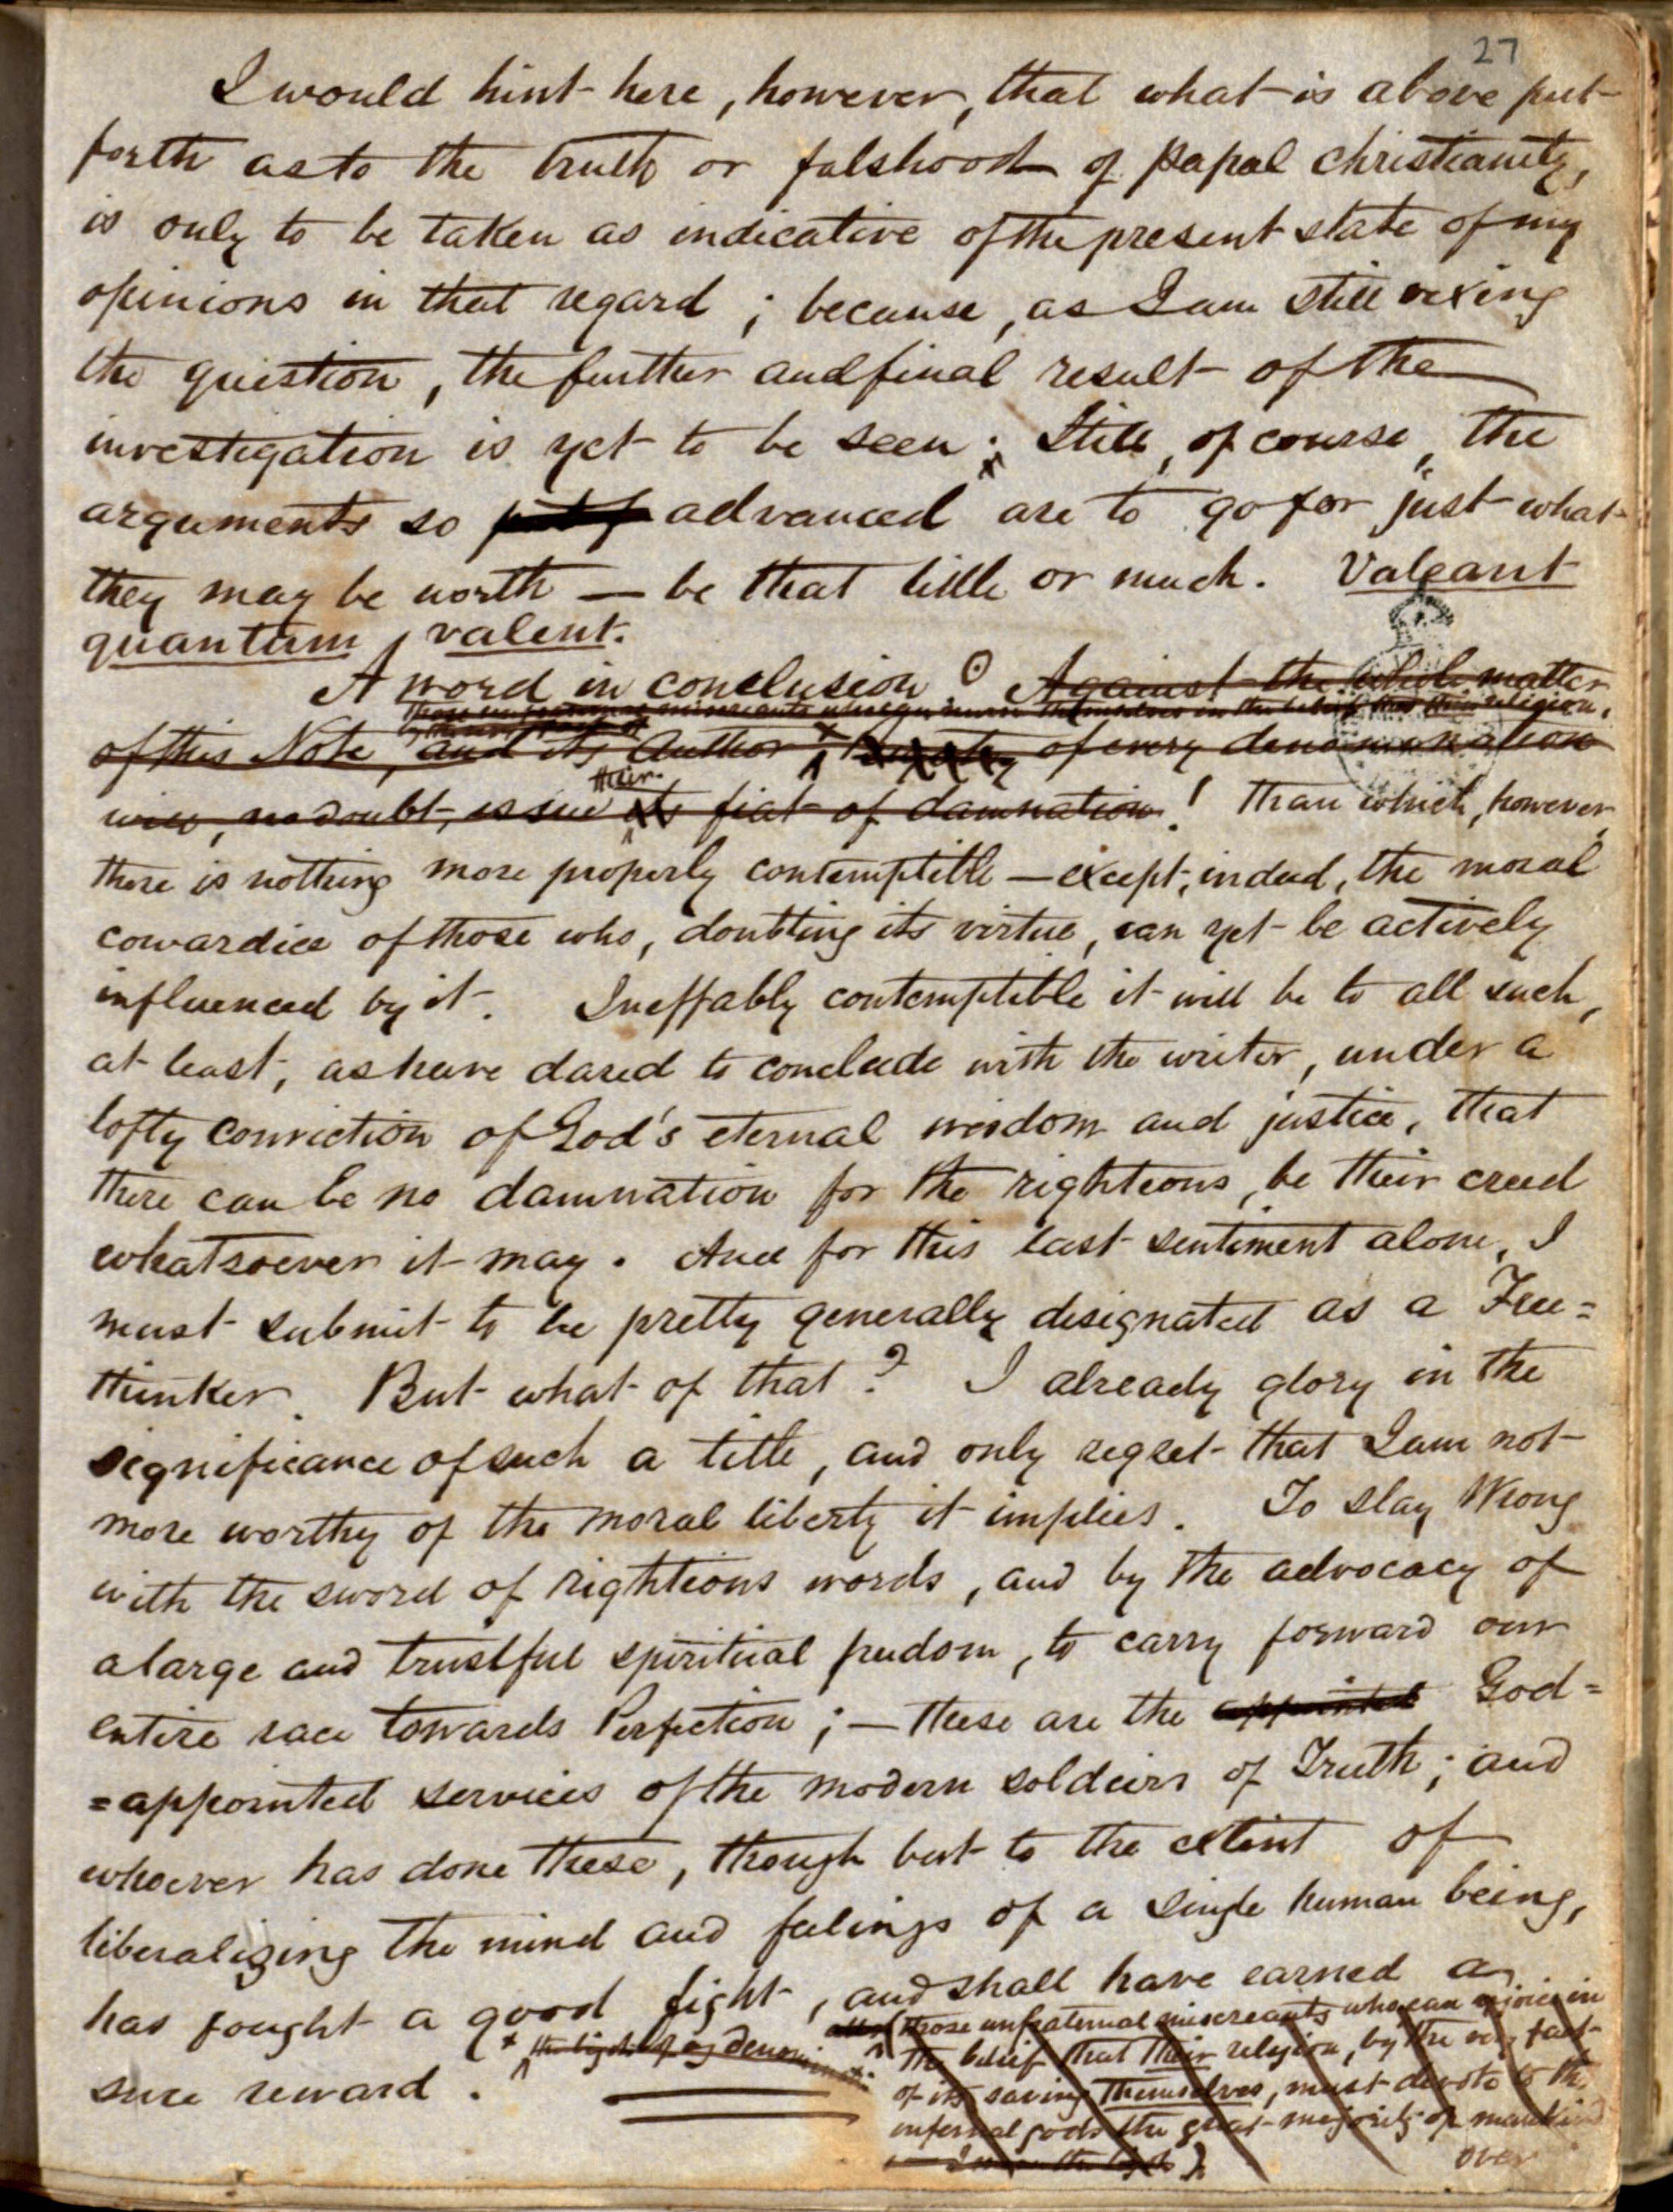 27
I would hint here, however, that what is above put
forth as to the truth or falshood of papal christianity,
is only to be taken as indicative of the present state of my
opinions in that regard ; because, as I am still vexing
the question, the further and final result of the
investigation is yet to be seen ; Still, of course, the
arguments so put f advanced are to go for just what
they may be worth — be that little or much. Valeant
quantum valent.
A word in conclusion. Against the whole matter
of this Note, and its Author of every denomination
their
will, no doubt, issue its fiat of damnation! Than which, however,
there is nothing more properly contemptible — except, indeed, the moral
cowardice of those who, doubting its virtue, can yet be actively
influenced by it. Ineffably contemptible it will be to all such,
at least, as have dared to conclude with the writer, under a
lofty conviction of God's eternal wisdom and justice, that
there can be no damnation for the righteous, be their creed
whatsoever it may. And for this last sentiment alone, I
must submit to be pretty generally designated as a Free=
thinker. But what of that? I already glory in the
significance of such a title, and only regret that I am not
more worthy of the moral liberty it implies. To slay Wrong
with the sword of rightious words, and by the advocacy of
a large and trustful spiritual freedom, to carry forward our
entire race towards Perfection ; — these are the appointed God=
=appointed services of the modern soldeirs of Truth ; and
whoever has done these, though but to the extent of
liberalizing the mind and feelings of a single human being,
has fought a good fight, and shall have earned a
sure reward.
those unfraternal miscreants who can rejoice in
the belief that their religion, by the very fact
of its saving themselves, must devote to the
infernal gods the great majority of mankind
over